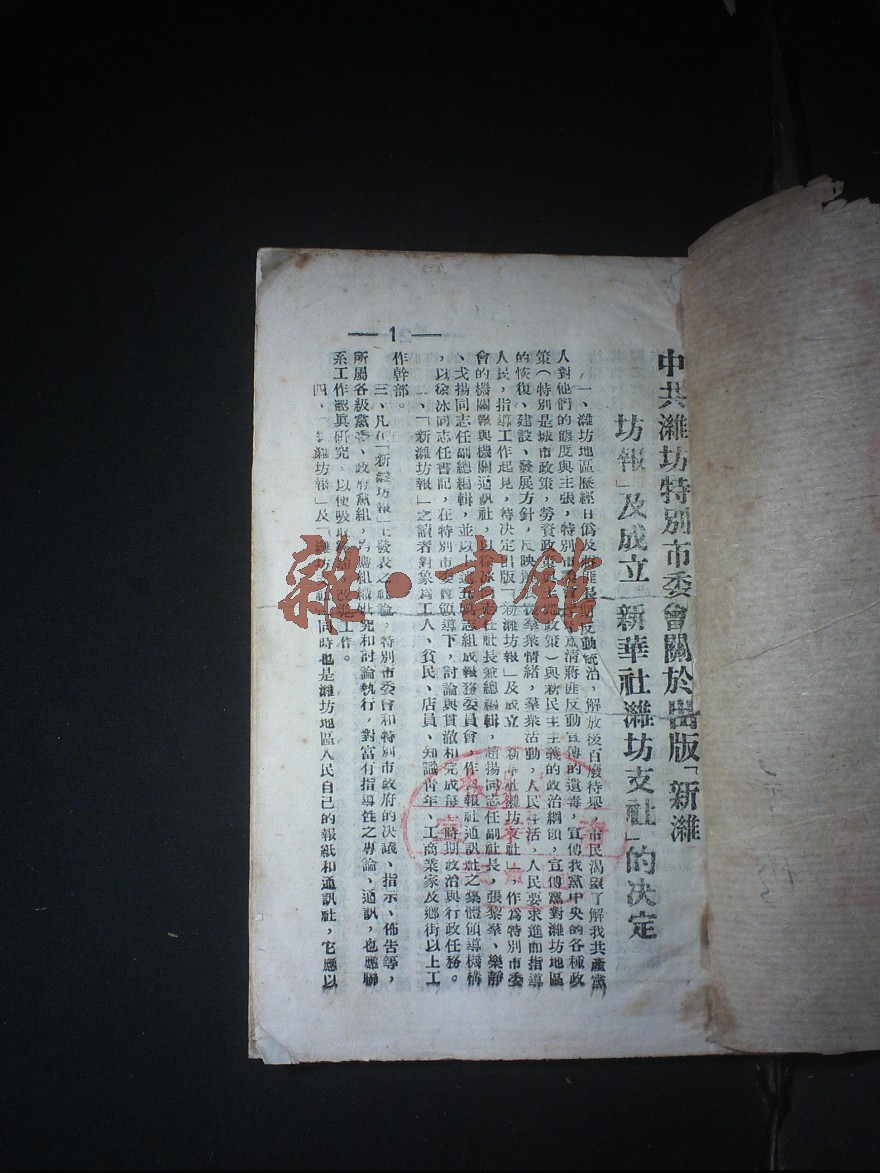 中共濰坊特別市委會關於出版「新濰
坊報」及成立「新華社濰坊支社」的決定
一、濰坊地區歷經日僞及蔣匪長期反動統治，解放後百廢待舉，市民渴望了解我共產黨
人對他們的態度與主張，特別市委 清蔣匪反動宣傳的遺毒，宣傳我黨中央的各種政
策（特別是城市政策，勞資政策 政策）與新民主主義的政治綱領，宣傳黨對濰坊地區
的恢復、建設、發展方針，反映 羣衆情緒，羣衆活動，人民生活，人民要求進而指導
人民，指導工作起見，特決定出版「新濰坊報」及成立「新華社濰坊支社」，作爲特別市委
會的機關報與機關通訊社，以徐冰同志任社長兼總編輯，趙揚同志任副社長，張黎羣、樂靜
、戈揚同志任副總編輯，並以上述五同志組成報務委員會，作爲報社通訊社之集體領導機構
，以徐冰同志任書記，在特別市委會領導下，討論與貫澈和完成每一時期政治與行政任務。
二、「新濰坊報」之讀者對象爲工人、貧民、店員、知識青年、工商業家及鄉街以上工
作幹部。
三、凡在「新濰坊報」上發表之社論，特別市委會和特別市政府的決議、指示、佈告等，
所屬各級黨委、政府黨組，各應組織研究和討論執行，對富有指導性之專論、通訊，也應聯
系工作認眞研究，以便吸取 改進工作。
四、「新濰坊報」及 同時也是濰坊地區人民自己的報紙和通訊社，它應以
— 1 —
雜·書館